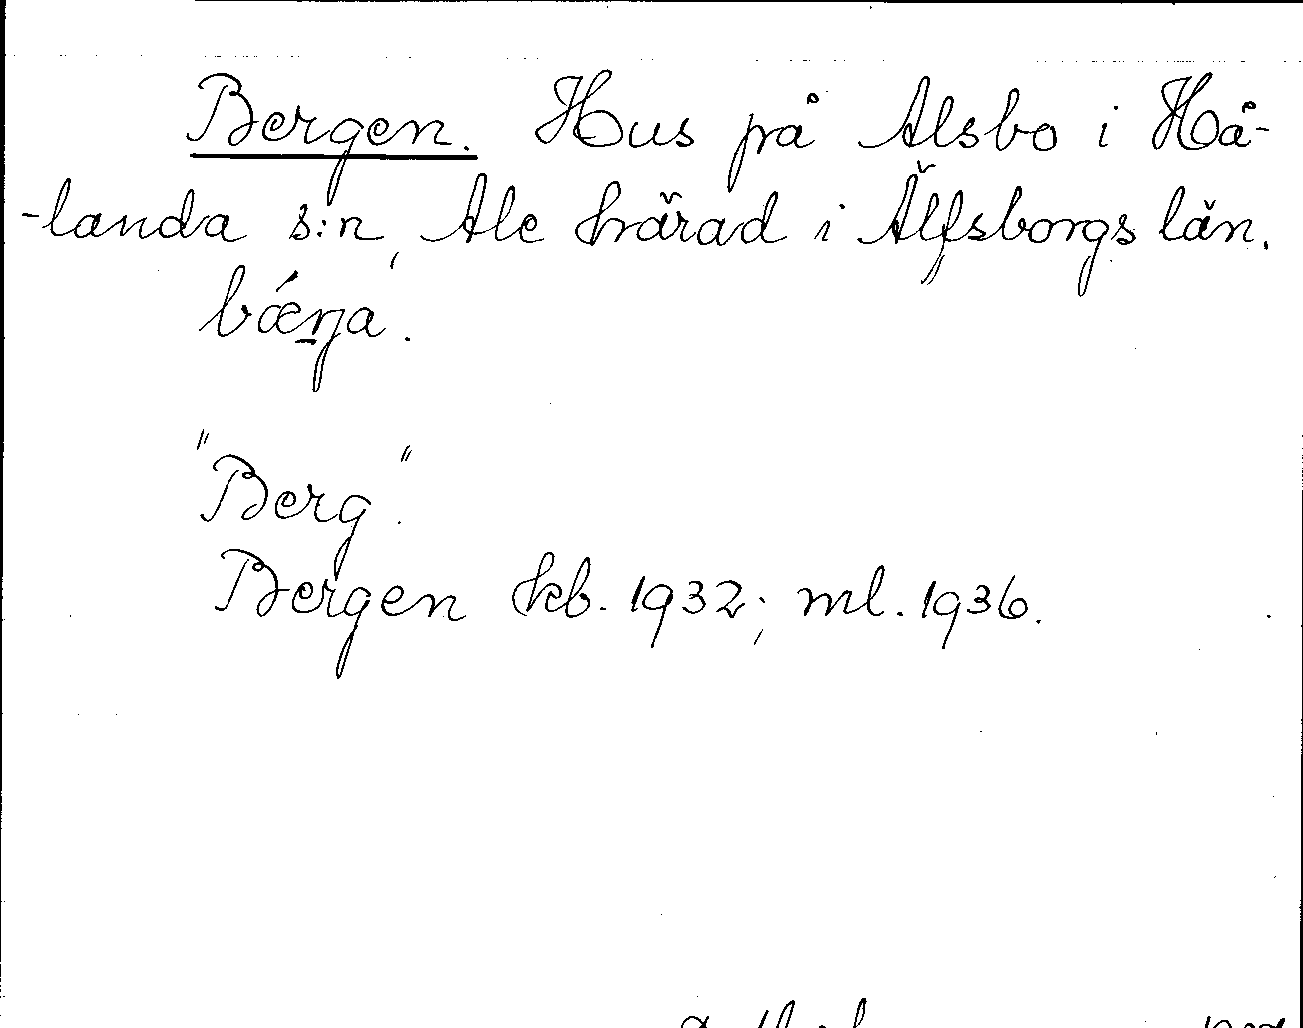 Bergen. Hus på Alsbo i Hå-
-landa s:n, Ale härad i Älfsborgs län.
bǽŋa.
"Berg".
Bergen kb. 1932; ml. 1936.